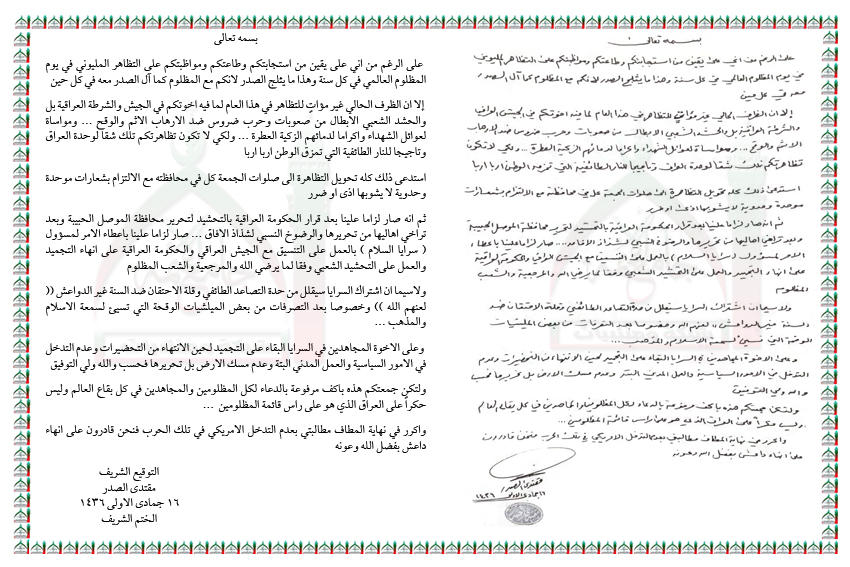 بسمه تعالى
على الرغم من اني على يقين من استجابتكم وطاعتكم ومواظبتكم على التظاهر المليوني في يوم
المظلوم العالمي في كل سنة وهذا ما يثلج الصدر لانكم مع المظلوم كما آل الصدر معه في كل حين
إلا ان الظرف الحالي غير مؤاتٍ للتظاهر في هذا العام لما فيه اخوتكم في الجيش والشرطة العراقية بل
والحشد الشعبي الابطال من صعوبات وحرب ضروس ضد الارهاب الاثم والوقح ... ومواساة
لعوائل الشهداء واكراما لدمائهم الزكية العطرة ... ولكي لا تكون تظاهرتكم تلك شقا لوحدة العراق
وتاجيجا للنار الطائفية التي تمزق الوطن اربا اربا
استدعى ذلك كله تحويل التظاهرة الى صلوات الجمعة كل في محافظته مع الالتزام بشعارات موحدة
وحدوية لا يشوبها اذى او ضرر
ثم انه صار لزاما علينا بعد قرار الحكومة العراقية بالتحشيد لتحرير محافظة الموصل الحبيبة وبعد
تراخي اهاليها من تحريرها والرضوخ النسبي لشذاذ الافاق ... صار لزاما علينا باعطاء الامر لمسؤول
( سرايا السلام ) بالعمل على التنسيق مع الجيش العراقي والحكومة العراقية على انهاء التجميد
والعمل على التحشيد الشعبي وفقا لما يرضي الله والمرجعية والشعب المظلوم
ولاسيما ان اشتراك السرايا سيقلل من حدة التصاعد الطائفي وقلة الاحتقان ضد السنة غير الدواعش ((
لعنهم الله )) وخصوصا بعد التصرفات من بعض الميلشيات الوقحة التي تسيئ لسمعة الاسلام
والمذهب ...
وعلى الاخوة المجاهدين في السرايا البقاء على التجميد لحين الانتهاء من التحضيرات وعدم التدخل
في الامور السياسية والعمل المدني البتة وعدم مسك الارض بل تحريرها فحسب والله ولي التوفيق
ولتكن جمعتكم هذه باكف مرفوعة بالدعاء لكل المظلومين والمجاهدين في كل بقاع العالم وليس
حكراً على العراق الذي هو على راس قائمة المظلومين ...
واكرر في نهاية المطاف مطالبتي بعدم التدخل الامريكي في تلك الحرب فنحن قادرون على انهاء
داعش بفضل الله وعونه
التوقيع الشريف
مقتدى الصدر
١٦ جمادى الاولى ١٤٣٦
الختم الشريف
بسمه تعالى
على الرغم من اني على يقين من استجابتكم وطاعتكم ومواظبتكم على التظاهر المليوني
في يوم المظلوم العالمي في كل سنة وهذا ما يثلج الصدر لانكم مع المظلوم كما آل الصدر
معه في كل حين
إلا ان الظرف الحالي غير مؤاتٍ للتظاهر في هذا العام لما فيه اخوتكم في الجيش العراقي
والشرطة العراقية بل والحشد الشعبي الابطال من صعوبات وحرب ضروس ضد الارهاب
الاثم والوقح ... ومواساة لعوائل الشهداء واكراما لدمائهم الزكية العطرة ... ولكي لا تكون
تظاهرتكم تلك شقا لوحدة العراق وتاجيجا للنار الطائفية التي تمزق الوطن اربا اربا
استدعى ذلك كله تحويل التظاهرة الى صلوات الجمعة كل في محافظته مع الالتزام بشعارات
موحدة وحدوية لا يشوبها اذى او ضرر
ثم انه صار لزاما علينا بعد قرار الحكومة العراقية بالتحشيد لتحرير محافظة الموصل الحبيبة
وبعد تراخي اهاليها من تحريرها والرضوخ النسبي لشذاذ الافاق ... صار لزاما علينا باعطاء
الامر لمسؤول ( سرايا السلام ) بالعمل على التنسيق مع الجيش العراقي والحكومة العراقية
على انهاء التجميد والعمل على التحشيد الشعبي وفقا لما يرضي الله والمرجعية والشعب
المظلوم
ولاسيما ان اشتراك السرايا سيقلل من حدة التصاعد الطائفي وقلة الاحتقان ضد
السنة غير الدواعش لعنهم الله وخصوصا بعد التصرفات من بعض الميلشيات
الوقحة التي تسيئ لسمعة الاسلام والمذهب ...
وعلى الاخوة المجاهدين في السرايا البقاء على التجميد لحين الانتهاء من التحضيرات وعدم
التدخل في الامور السياسية والعمل المدني البتة وعدم مسك الارض بل تحريرها فحسب
والله ولي التوفيق
ولتكن جمعتكم هذه باكف مرفوعة بالدعاء لكل المظلومين والمجاهدين في كل بقاع العالم
وليس حكراً على العراق الذي هو على راس قائمة المظلومين ...
واكرر في نهاية المطاف مطالبتي بعدم التدخل الامريكي في تلك الحرب فنحن قادرون
على انهاء داعش بفضل الله وعونه
مقتدى الصدر
١٦ جمادى الاولى ١٤٣٦